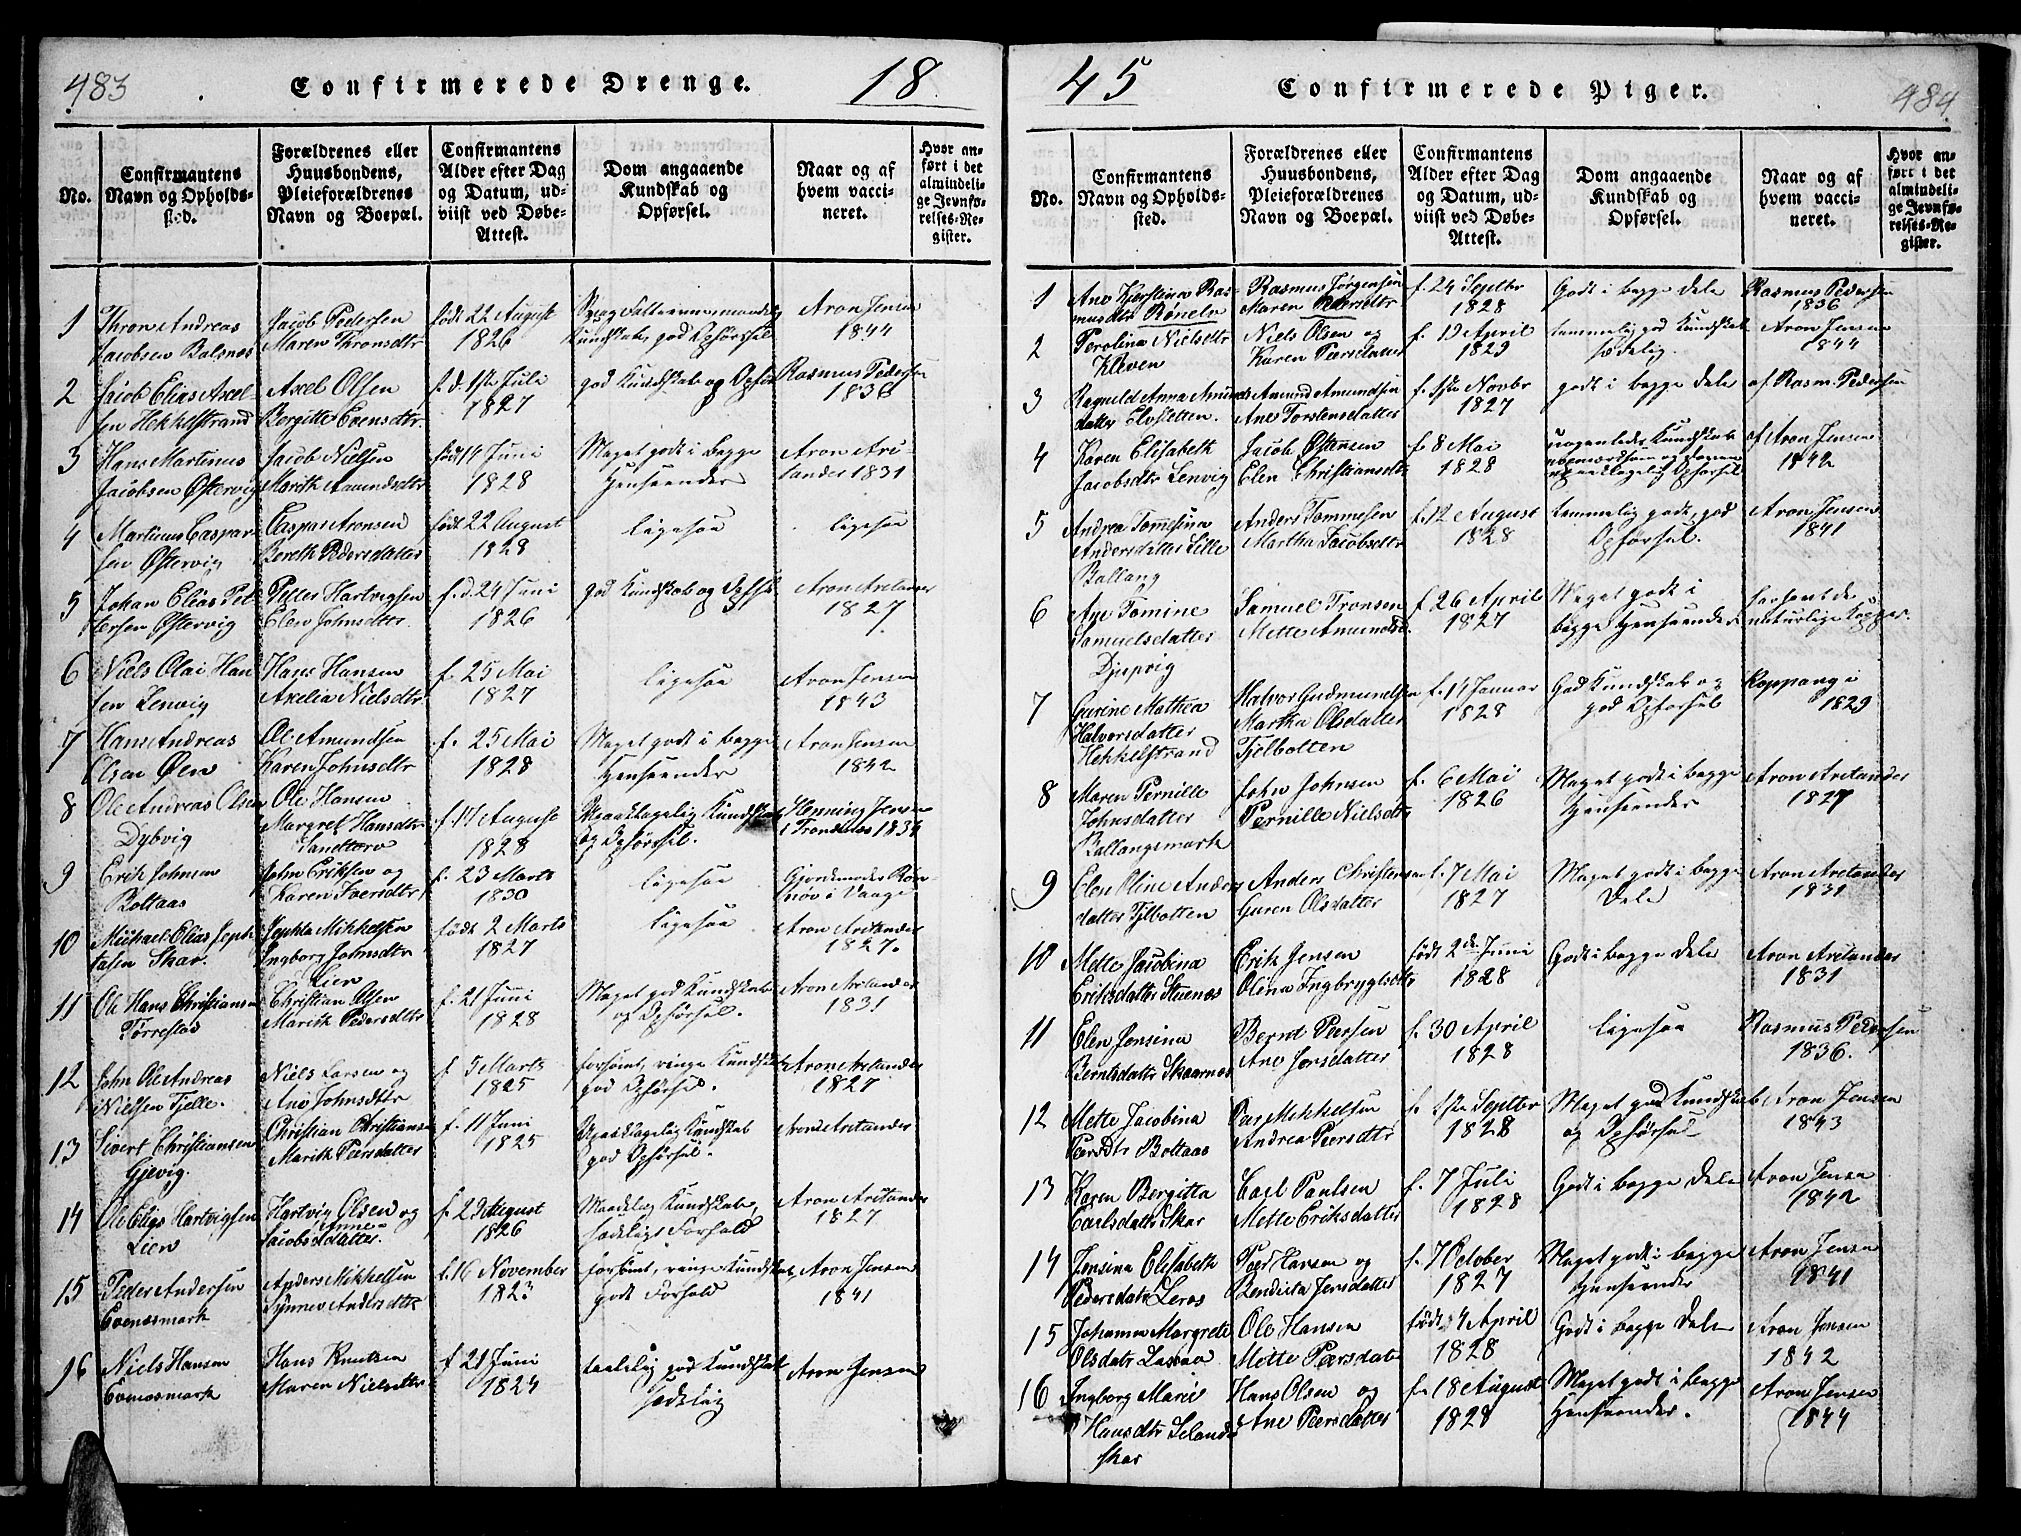 483
Confirmerede Drenge.
18
No.
Confirmantens Navn og Opholdssted.
Forældrenes eller Huusbondens, Pleieforældrenes Navn og Boepæl.
Confirmantens Alder efter Dag og Datum, udviist ved Døbe-Attest.
Dom angaaende Kundskab og Opførsel.
Naar og af hvem vaccineret.
Hvor anført i det almindelige Jevnførelses-Register.
1 Thron Andreas Jacob Pedersen født 22 August Aron Jensen
Jacobsen Balsnes Maren Thronsdtr 1826 Kundskab, god Opførsel 1844
2 Jacob Elias Axel- Axel Olsen f. d. 1ste Juli god Kundskab og Opførs Rasmus Pedersen
sen Hekkelstrand Bergitte Evensdtr. 1827 1836
3 Hans Martinus Jacob Nielsen født 14 Juni Meget godt i begge Aron Are-
Jacobsen Østervig Marith Amundsdtr 1828 Henseender tander 1831
4 Martinus Caspar- Caspar Aronsen født 22 August ligesaa ligesaa
sen Østervig Bereth Pedersdatter 1828
5 Johan Elias Pet- Petter Hartvigsen f. d. 24 Juni god Kundskab og Opførs Aron Aretander
tersen Østervig Elen Johnsdtr. 1826 1827
6 Niels Olai Han- Hans Hansen f. 25 Mai ligesaa Aron Jensen
sen Lenvig Axelia Nielsdtr 1827 1843
7 Hans Andreas Ole Amundsen f. 25 Mai Meget godt i begge Aron Jensen
Olsen Øen Karen Johnsdtr 1828 Henseender 1842
8 Ole Andreas Olsen Ole Hansen f. 17 August Upaaklagelig Kundskab Henning Jensen
Dybvig Margret Hansdtr Sandtorv 1828 og Opførsel. i Trondenes 1834
9 Erik Johnsen John Eriksen og f. 23 Marts ligesaa
Boltaas Karen Iversdtr 1830
10 Michael Elias Jeph- Jephta Mikkelsen født 2 Marts ligesaa Aron Aretander
tasen Skar. Ingborg Johnsdtr Lien 1827 1827.
11 Ole Hans Christiansen Christian Olsen f. 21 Juni Meget god Kundskab Aron Aretander
Tørrestad Marith Pedersdtr 1828 og Opførsel. 1831
12 John Ole Andreas Niels Larsen og f. 5 Marts forsømt, ringe Kundskab Aron Aretander
Nielsen Tjelle. Ane Johnsdtr 1825 god Opførsel. 1827
13 Sivert Christiansen Christian Christians f. 11 Juni Upaaklagelig Kundskab Aron Aretander
Gjevig. Marith Peersdatter 1825 god Opførsel.
14 Ole Elias Hartvigsen Hartvig Olsen og f. August Maadelig Kundskab, Aron Aretander
Lien Anne Jacobsdatter. 1826 sædeligt Forhold 1827
15 Peder Andersen Anders Mikkelsen f. 16 November forsømt, ringe Kundskab Aron Jensen
Evenesmark Synnev Andersdtr 1823 godt Forhold 1841
16 Niels Hansen Hans Knutsen f. 21 Juni god Kundskab Aron Jensen
Evenesmark Maren Nielsdtr 1824 sædelig
45
Confirmerede Piger.
484
No.
Confirmantens Navn og Opholdssted.
Forældrenes eller Huusbondens, Pleieforældrenes Navn og Boepæl.
Confirmantens Alder efter Dag og Datum, udviist ved Døbe-Attest.
Dom angaaende Kundskab og Opførsel.
Naar og af hvem vaccineret.
Hvor anført i det almindelige Jevnførelses-Register.
1 Ane Kjerstina Ras- Rasmus Jørgensen f. 24 Septbr Godt i begge Dele Rasmus Pedersen
musdtr Maren Pedersdtr 1828 1836
2 Perolina Nielsdtr Niels Olsen og f. 19 April temmelig god Kundskab Aron Jensen
Kleven Karen Peersdatter 1829 sædelig. 1844
3 Ragnild Anna Amunds Amund Amundsen f. 1ste Novbr godt i begge Dele af Rasm. Pedersen
datter Elvsletten. Ane Torstensdatter 1827
4 Karen Elisabeth Jacob f. 8 Mai Kundskab af Aron Jensen
Jacobsdtr Lenvig Elen Christiansdtr 1828 Opførsel 1842
5 Andrea Tommesina Anders Tommesen f. 12 August temmelig godt, god Aron Jensen
Andersdatter Lille Martha Jacobsdtr 1828 Opførsel. 1841
Ballang
6 Ane Tomine Samuel Tronsen f. 26 April Meget godt i
Samuelsdatter Mette Amundsd. 1827 begge Henseender naturlige Kopper.
Djupvig
7 Gurine Mathea Halvor Gudmundsen f. 14 Januar God Kundskab og Koppang i
Halvorsdatter Martha Olsdatter 1828 god Opførsel 1829
Hekkelstrand Tjelbotten
8 Maren Pernille John Johnsen f. 6 Mai Meget godt i begge Aron Aretander
Johnsdatter Pernille Nielsdtr 1826 Henseender 1827
Ballangsmark
9 Elen Oline Anders Anders Christensen f. 7 Mai Meget godt i begge Aron Aretander
datter Tjelbotten Guren Olsdatter 1827 Dele 1831
10 Mette Jacobina Erik Jensen født 2d. Juni Godt i begge Dele Aron Aretander
Eriksdatter Stuenæs Olina Ingbrygtsdtr 1828 1831
11 Elen Jensina Bernt Peersen f. 30 April ligesaa Rasmus Pedersen
Berntsdatter Skaarnes Ane Jensdatter 1828 1836.
12 Mette Jacobina Peer Mikkelsen f. 1ste Septbr Meget god Kundskab Aron Jensen
Peersdtr Boltaas Andrea Peersdtr 1828 og Opførsel 1843
13 Karen Bergitta Carl Paulsen f. 7 Juli Godt i begge Dele Aron Jensen
Carlsdatter Skar Mette Eriksdatter 1828 1842
14 Jensina Elisabeth Peer Hansen og f. 7 October Meget godt i begge Aron Jensen
Pedersdatr Leros Bendicta Jensdatter 1827 Henseender 1841
15 Johanna Margrete Ole Hansen født 4 April Godt i begge Dele Aron Jensen
Olsdatr Mette Peersdatr 1828 1842
16 Ingborg Marie Hans Olsen og f. 18 August Meget godt i begge Aron Jensen
Hansdtr Ane Peersdatter 1828 Henseender. 1844
Skar